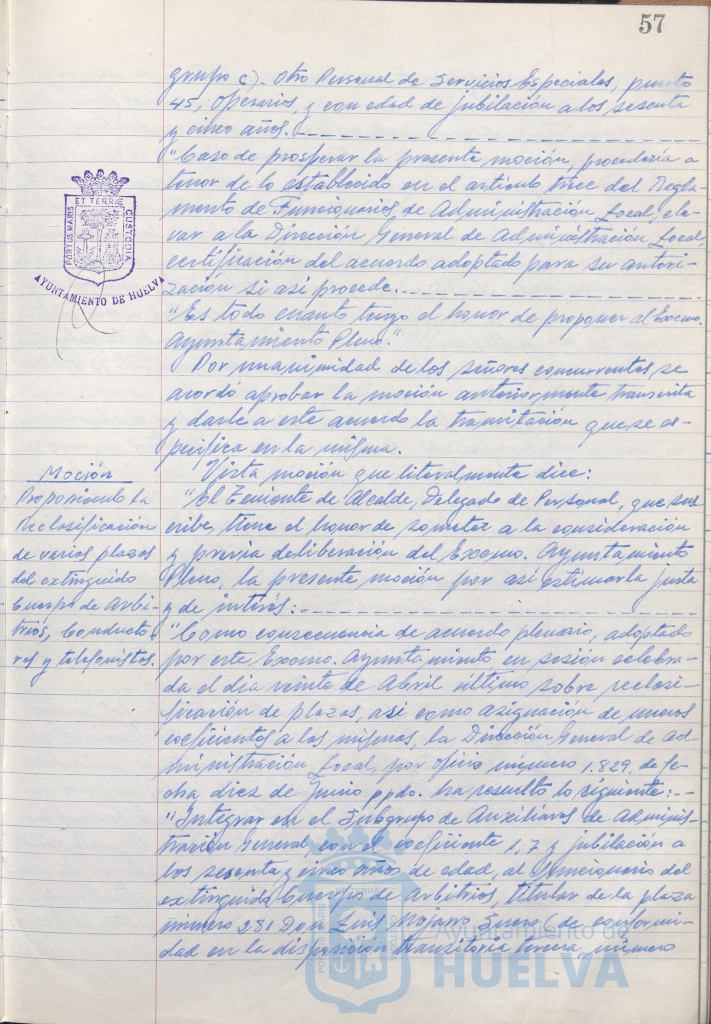 57
grupo c).- Otro Personal de Servicios Especiales, punto
45, Operarios, y con edad de jubilación a los sesenta
y cinco años.
"Caso de prosperar la presente moción, procedería a
tenor de lo establecido en el artículo trece del Regla-
mento de Funcionarios de Administración Local, ele-
var a la Dirección General de Administración Local,
certificación del acuerdo adoptado para su autori-
zación si así procede.
"Es todo cuanto tengo el honor de proponer al Excmo.
Ayuntamiento Pleno."
Por unanimidad de los señores concurrentes se
acordó aprobar la moción anteriormente transcrita
y darle a este acuerdo la tramitación que se es-
pecifica en la misma.
Moción
Proponiendo la
reclasificación
de varias plazas
del extinguido
Cuerpo de Arbi-
trios, Conducto-
res y telefonistas.
Vista moción que literalmente dice:
"El Teniente de Alcalde, Delegado de Personal, que sus-
cribe, tiene el honor de someter a la consideración
y previa deliberación del Excmo. Ayuntamiento
Pleno, la presente moción por así estimarla justa
y de interés:
"Como consecuencia de acuerdo plenario, adoptado
por este Excmo. Ayuntamiento, en sesión celebra-
da el día veinte de Abril último sobre reclasi-
ficación de plazas, así como asignación de nuevos
coeficientes a las mismas, la Dirección General de Ad-
ministración Local, por oficio número 1.829, de fe-
cha diez de Junio ppdo. ha resuelto lo siguiente:
"Integrar en el Subgrupo de Auxiliares de Adminis-
tración General, con el coeficiente 1,7 y jubilación a
los sesenta y cinco años de edad, al funcionario del
extinguido Cuerpo de Arbitrios, titular de la plaza
número 281 Don Luis Mojarro Suero (de conformi-
dad en la disposición transitoria tercera, número
PORTUS MARIS
ET TERRÆ
CUSTODIA
AYUNTAMIENTO DE HUELVA
Ayuntamiento de
HUELVA